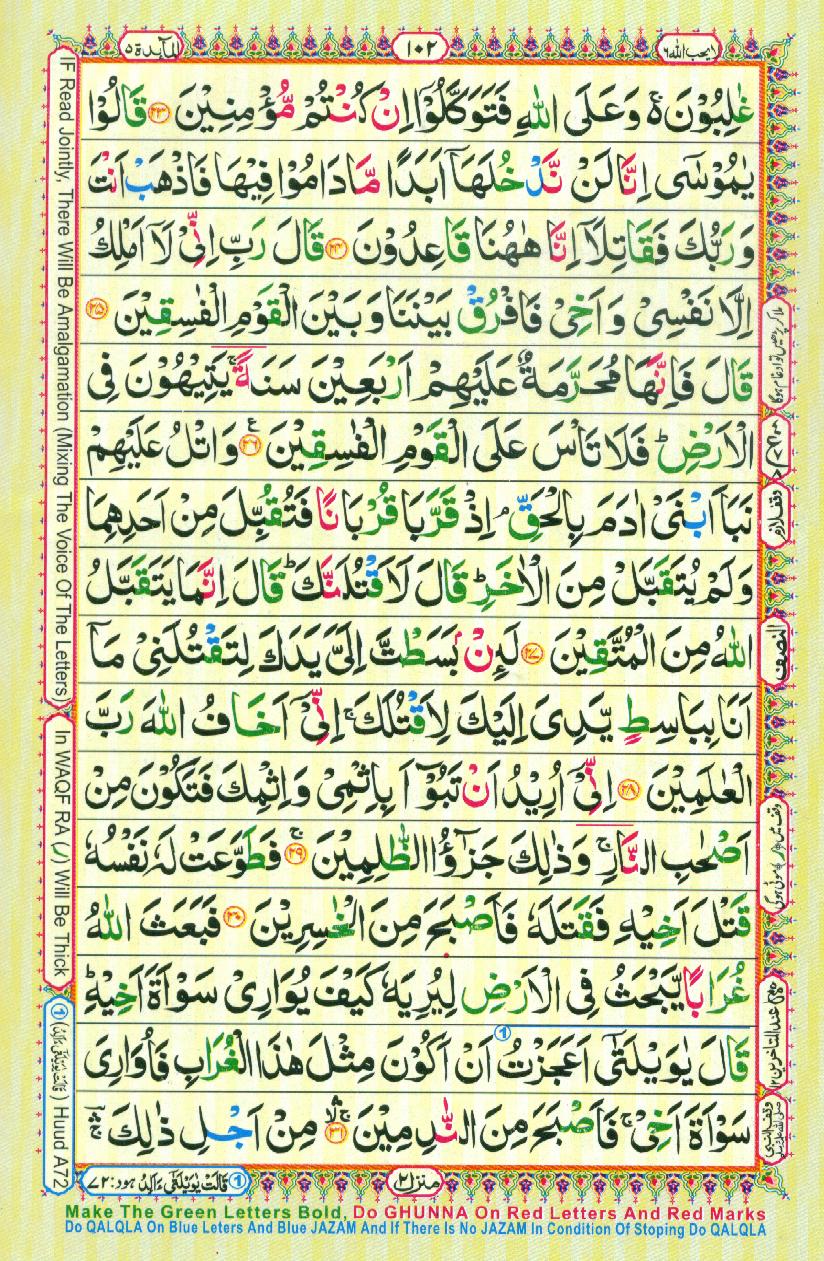 المآىدة ٥
١٠٢
لا يحب الله ٦
غٰلِبُوْنَ ۚ۬ وَعَلَى اللّٰهِ فَتَوَكَّلُوْۤا اِنْ كُنْتُمْ مُّؤْمِنِيْنَ ﴿۲۳﴾ قَالُوْا
يٰمُوْسٰۤى اِنَّا لَنْ نَّدْخُلَهَاۤ اَبَدًا مَّا دَامُوْا فِيْهَا فَاذْهَبْ اَنْتَ
وَرَبُّكَ فَقَاتِلَاۤ اِنَّا هٰهُنَا قَاعِدُوْنَ ﴿۲۴﴾ قَالَ رَبِّ اِنِّىْ لَاۤ اَمْلِكُ
اِلَّا نَفْسِىْ وَاَخِىْ فَافْرُقْ بَيْنَنَا وَبَيْنَ الْقَوْمِ الْفٰسِقِيْنَ ﴿۲۵﴾
قَالَ فَاِنَّهَا مُحَرَّمَةٌ عَلَيْهِمْ اَرْبَعِيْنَ سَنَةً ۚ يَتِيْهُوْنَ فِى
الْاَرْضِ ؕ فَلَا تَاْسَ عَلَى الْقَوْمِ الْفٰسِقِيْنَ ﴿۲۶﴾ ع وَاتْلُ عَلَيْهِمْ
نَبَاَ ابْنَىْ اٰدَمَ بِالْحَقِّ ۘ اِذْ قَرَّبَا قُرْبَانًا فَتُقُبِّلَ مِنْ اَحَدِهِمَا
وَلَمْ يُتَقَبَّلْ مِنَ الْاٰخَرِ ؕ قَالَ لَاَقْتُلَنَّكَ ؕ قَالَ اِنَّمَا يَتَقَبَّلُ
اللّٰهُ مِنَ الْمُتَّقِيْنَ ﴿۲۷﴾ لَئِنْۢ بَسَطْتَّ اِلَىَّ يَدَكَ لِتَقْتُلَنِىْ مَاۤ
اَنَا بِبَاسِطٍ يَّدِىَ اِلَيْكَ لِاَقْتُلَكَ ۚ اِنِّىْۤ اَخَافُ اللّٰهَ رَبَّ
الْعٰلَمِيْنَ ﴿۲۸﴾ اِنِّىْۤ اُرِيْدُ اَنْ تَبُوْٓاَ بِاِثْمِىْ وَاِثْمِكَ فَتَكُوْنَ مِنْ
اَصْحٰبِ النَّارِ ۚ وَذٰلِكَ جَزٰٓؤُا الظّٰلِمِيْنَ ﴿۲۹﴾ ۚ فَطَوَّعَتْ لَهٗ نَفْسُهٗ
قَتْلَ اَخِيْهِ فَقَتَلَهٗ فَاَصْبَحَ مِنَ الْخٰسِرِيْنَ ﴿۳۰﴾ فَبَعَثَ اللّٰهُ
غُرَابًا يَّبْحَثُ فِى الْاَرْضِ لِيُرِيَهٗ كَيْفَ يُوَارِىْ سَوْاَةَ اَخِيْهِ ؕ
قَالَ يٰوَيْلَتٰۤى اَعَجَزْتُ ① اَنْ اَكُوْنَ مِثْلَ هٰذَا الْغُرَابِ فَاُوَارِىَ
سَوْاَةَ اَخِىْ ۚ فَاَصْبَحَ مِنَ النّٰدِمِيْنَ ﴿۳۱﴾ ۚۛ ۙ مِنْ اَجْلِ ذٰلِكَ ۚۛ
IF Read Jointly, There Will Be Amalgamation (Mixing The Voice Of The Letters)
In WAQF RA (ر) Will Be Thick
① (قَالَتْ يٰوَيْلَتٰۤى ءَاَلِدُ) Huud A72
ملا کر پڑھیں تو ادغام ہوگا
وقف لازم
النصف
وقف میں
① قَالَتْ يٰوَيْلَتٰۤى ءَاَلِدُ ہود: ٧٢
منزل ٢
Make The Green Letters Bold, Do GHUNNA On Red Letters And Red Marks
Do QALQLA On Blue Leters And Blue JAZAM And If There Is No JAZAM In Condition Of Stoping Do QALQLA